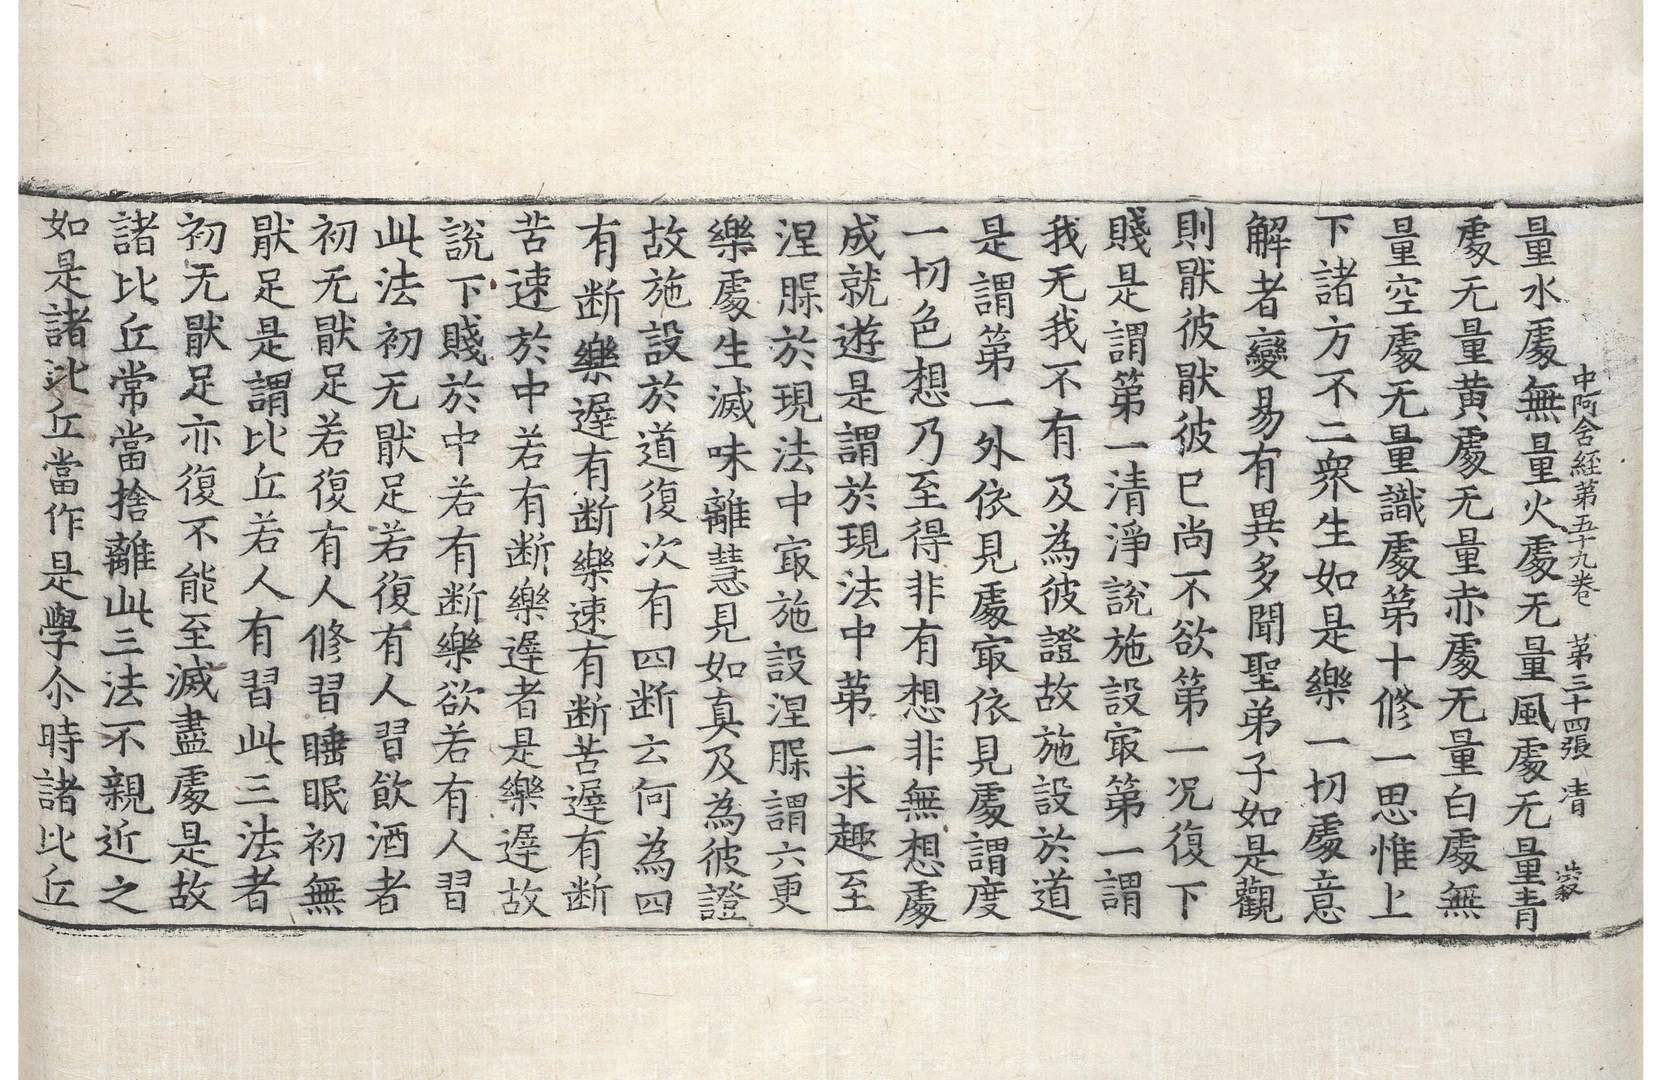 中阿含経第五十九卷 第三十四張 清
量水處無量火處无量風處无量青
處无量黃處无量赤處无量白處無
量空處无量識處第十修一思惟上
下諸方不二衆生如是樂一切處意
解者變易有異多聞聖弟子如是觀
則猒彼猒彼已尚不欲第一況復下
賤是謂第一清淨說施設㝡第一謂
我无我不有及為彼證故施設於道
是謂第一外依見處㝡依見處謂度
一切色想乃至得非有想非無想處
成就遊是謂於現法中第一求趣至
涅槃於現法中㝡施設涅槃謂六更
樂處生滅味離慧見如真及為彼證
故施設於道復次有四断云何為四
有断樂遟有断樂速有断苦遟有断
苦速於中若有断樂遟者是樂遟故
說下賤於中若有断樂欲若有人習
此法初无猒足若復有人習飲酒者
初无猒足若復有人修習睡眠初無
猒足是謂比丘若人有習此三法者
初无猒足亦復不能至滅盡處是故
諸比丘常當捨離此三法不親近之
如是諸比丘當作是學尒時諸比丘